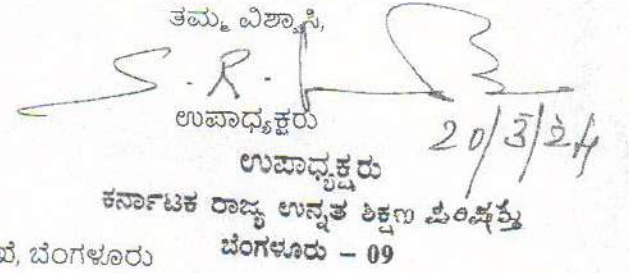 ತಮ್ಮ ವಿಶ್ವಾಸಿ,
S. R.
ಉಪಾಧ್ಯಕ್ಷರು
20/3/24
ಉಪಾಧ್ಯಕ್ಷರು
ಕರ್ನಾಟಕ ರಾಜ್ಯ ಉನ್ನತ ಶಿಕ್ಷಣ ಪರಿಷತ್ತು
ಬೆಂಗಳೂರು ಬೆಂಗಳೂರು – 09